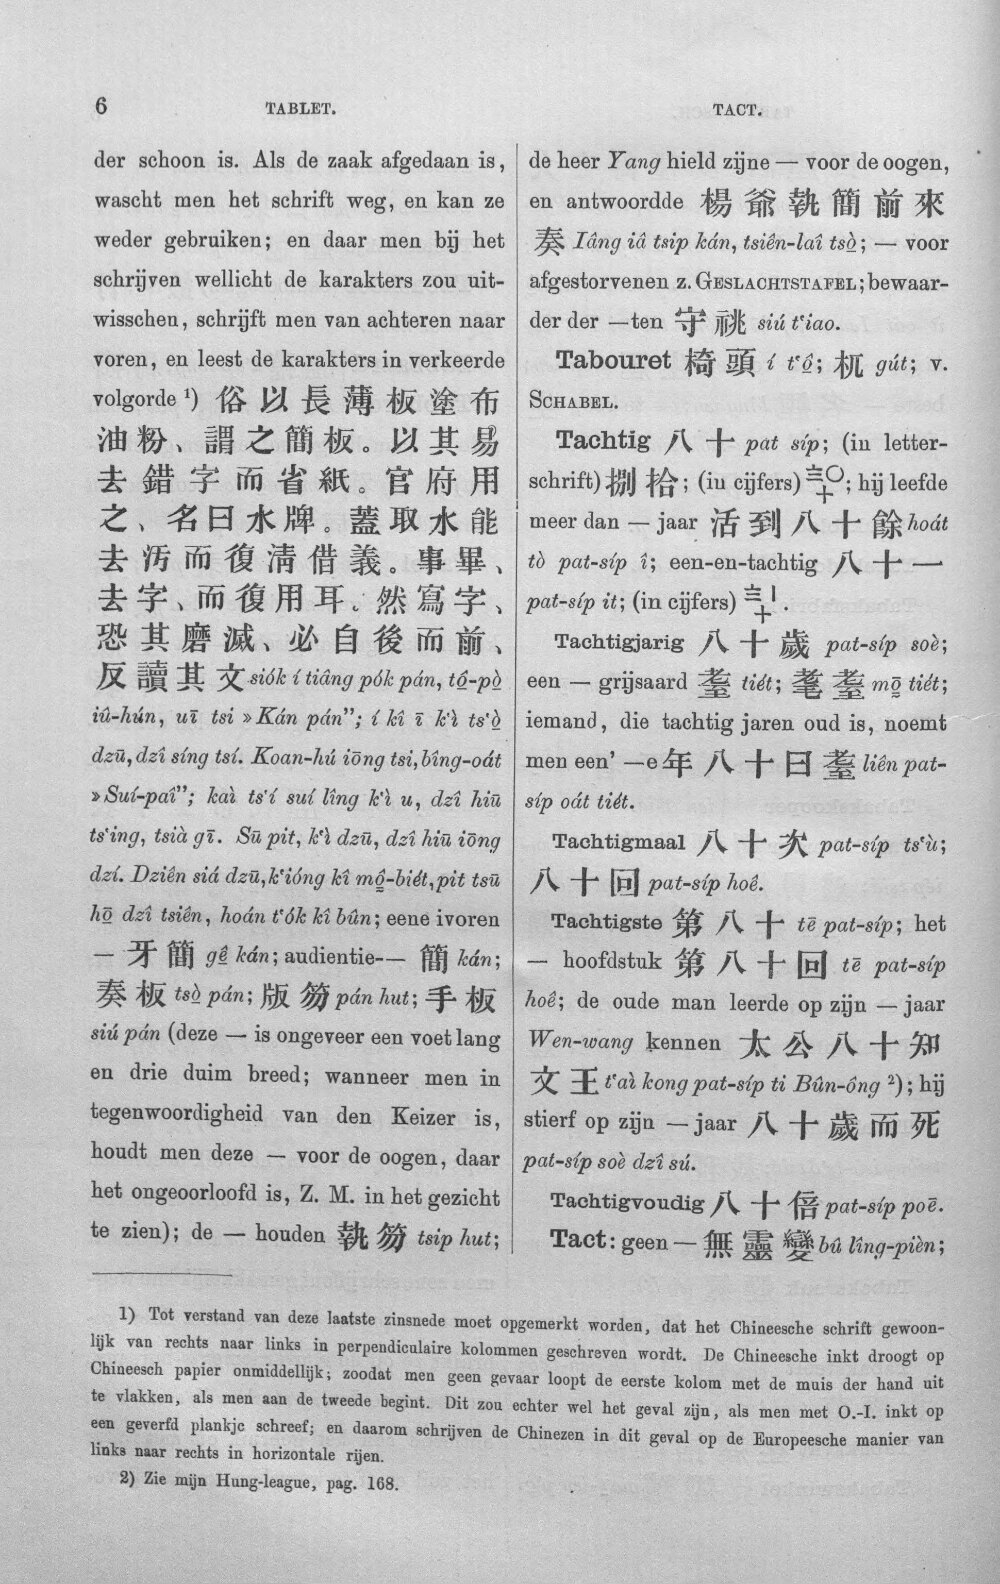 6 TABLET. TACT.
der schoon is. Als de zaak afgedaan is,
wascht men het schrift weg, en kan ze
weder gebruiken; en daar men bij het
schrijven wellicht de karakters zou uit-
wisschen, schrijft men van achteren naar
voren, en leest de karakters in verkeerde
volgorde ¹) 俗以長薄板塗布
油粉、謂之簡板。以其易
去錯字而省紙。官府用
之、名曰水牌。蓋取水能
去汚而復清借義。事畢、
去字、而復用耳。然寫字、
恐其磨滅、必自後而前、
反讀其文 siók í tiâng pók pán, tô̤-pò̤
iû-hún, uī tsi »Kán pán"; í kî ī k‘ì ts‘ò̤
dzū, dzî síng tsí. Koan-hú iōng tsi, bîng-oát
»Suí-paî"; kaì ts‘í suí lîng k‘ì u, dzî hiū
ts‘ing, tsià gī. Sū pit, k‘ì dzū, dzî hiū iōng
dzí. Dziên siá dzū, k‘ióng kî mô̤-biét, pit tsū
hō̤ dzî tsiên, hoán t‘ók kî bûn; eene ivoren
— 牙簡 gê̤ kán; audientie-— 簡 kán;
奏板 tsò̤ pán; 版笏 pán hut; 手板
siú pán (deze — is ongeveer een voet lang
en drie duim breed; wanneer men in
tegenwoordigheid van den Keizer is,
houdt men deze — voor de oogen, daar
het ongeoorloofd is, Z. M. in het gezicht
te zien); de — houden 執笏 tsip hut;
de heer Yang hield zijne — voor de oogen,
en antwoordde 楊爺執簡前來
奏 Iâng iâ tsip kán, tsiên-laî tsò̤; — voor
afgestorvenen z. GESLACHTSTAFEL; bewaar-
der der —ten 守祧 siú t‘iao.
Tabouret 椅頭 í t‘ô̤; 杌 gút; v.
SCHABEL.
Tachtig 八十 pat síp; (in letter-
schrift) 捌拾; (in cijfers) 〨〇十; hij leefde
meer dan — jaar 活到八十餘 hoát
tò pat-síp î; een-en-tachtig 八十一
pat-síp it; (in cijfers) 〨〡十.
Tachtigjarig 八十歲 pat-síp soè;
een — grijsaard 耋 tiét; 耄耋 mō̤ tiét;
iemand, die tachtig jaren oud is, noemt
men een' —e 年八十曰耋 liên pat-
síp oát tiét.
Tachtigmaal 八十次 pat-síp ts‘ù;
八十回 pat-síp hoê.
Tachtigste 第八十 tē pat-síp; het
— hoofdstuk 第八十回 tē pat-síp
hoê; de oude man leerde op zijn — jaar
Wen-wang kennen 太公八十知
文王 t‘aì kong pat-síp ti Bûn-ông ²); hij
stierf op zijn — jaar 八十歲而死
pat-síp soè dzî sú.
Tachtigvoudig 八十倍 pat-síp poē.
Tact: geen — 無靈變 bû lîng-pièn;
1) Tot verstand van deze laatste zinsnede moet opgemerkt worden, dat het Chineesche schrift gewoon-
lijk van rechts naar links in perpendiculaire kolommen geschreven wordt. De Chineesche inkt droogt op
Chineesch papier onmiddellijk; zoodat men geen gevaar loopt de eerste kolom met de muis der hand uit
te vlakken, als men aan de tweede begint. Dit zou echter wel het geval zijn, als men met O.-I. inkt op
een geverfd plankje schreef; en daarom schrijven de Chinezen in dit geval op de Europeesche manier van
links naar rechts in horizontale rijen.
2) Zie mijn Hung-league, pag. 168.